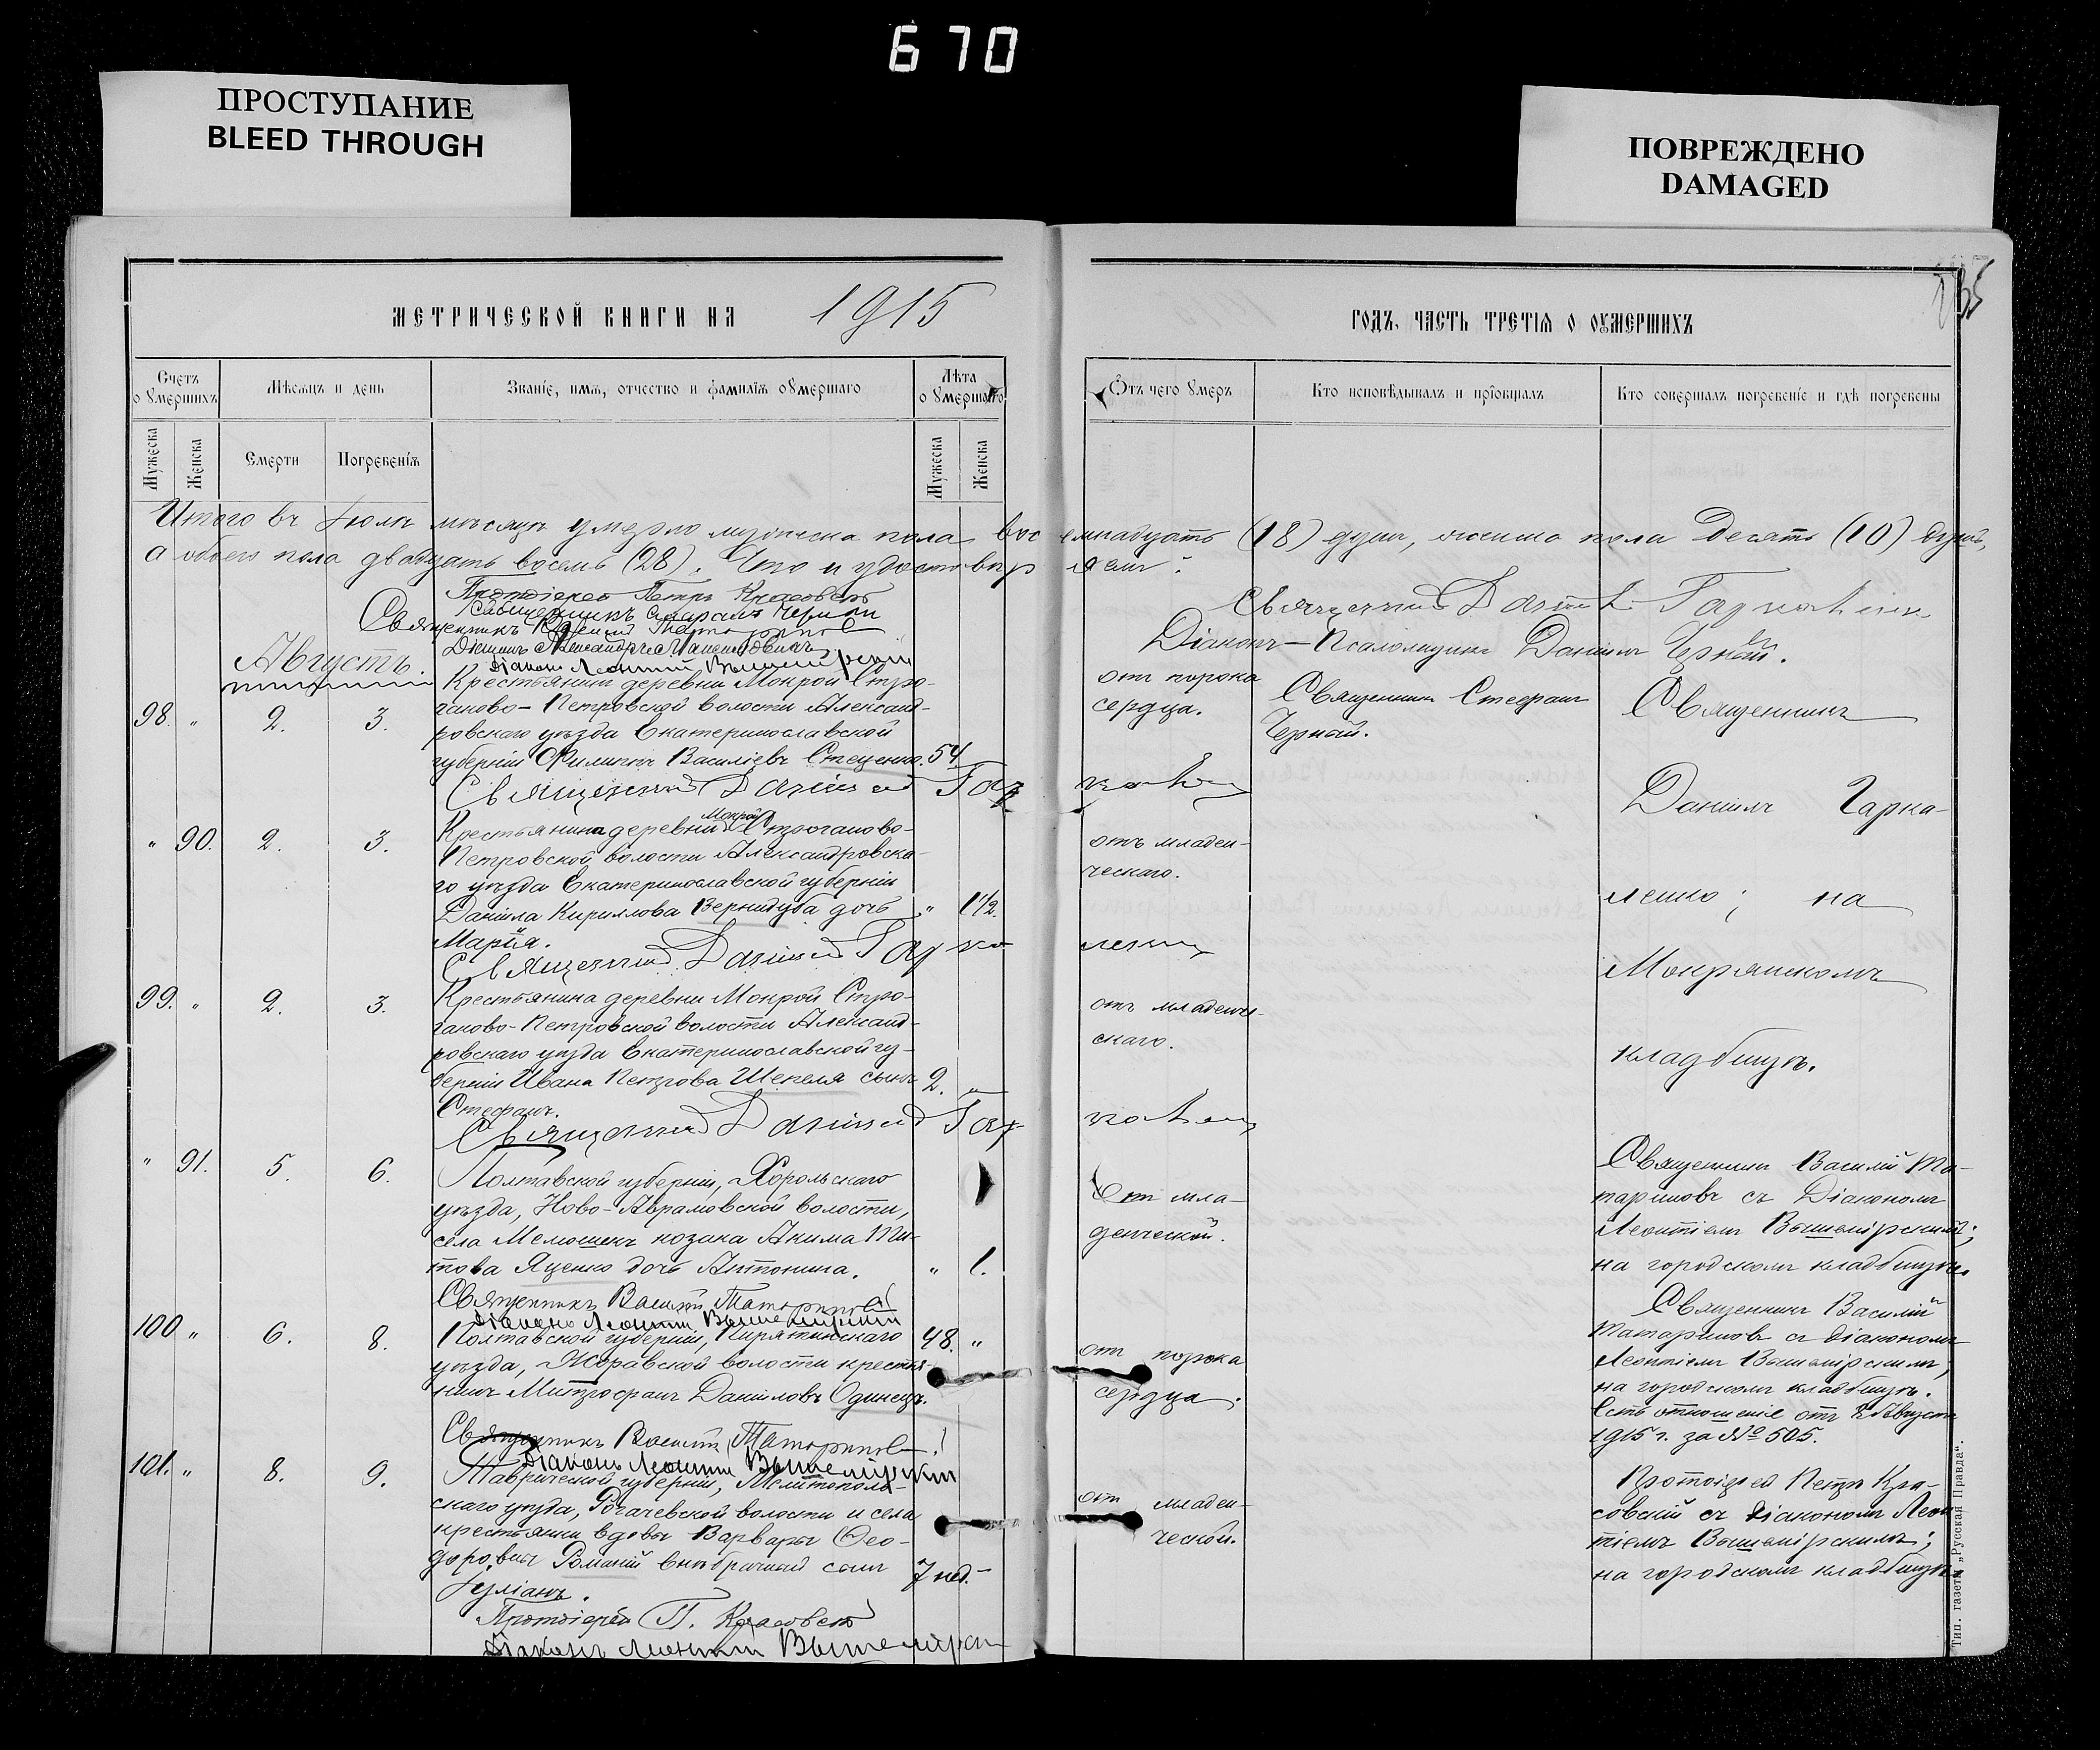 670
ПРОСТУПАНИЕ
BLEED THROUGH
ПОВРЕЖДЕНО
DAMAGED
МЕТРИЧЕСКОЙ КНИГИ НА 1915
ГОДЪ, ЧАСТЬ ТРЕТІЯ О ОУМЕРШИХЪ
Счетъ оумершихъ
Мѣсяцъ и день
Званіе, имя, отчество и фамилія оумершаго
Лѣта оумершаго
Отъ чего умеръ
Кто исповѣдывалъ и пріобщалъ
Кто совершалъ погребеніе и гдѣ погребены
Мужеска
Женска
Смерти
Погребенія
Мужеска
Женска
Итого въ Іюлѣ мѣсяцѣ умерло мужеска пола восемнадцать (18) душъ, женска пола десять (10) душъ,
а обоего пола двадцать восемь (28). Что и удостовѣряемъ:
Протоіерей Петръ Красовскій
Священникъ Стефанъ Черный
Священникъ Василій Татариновъ
Священникъ Даніилъ Гаркаленко
Діаконъ Александръ
Діаконъ Леонтій Вышемірскій
Діаконъ-Псаломщикъ Даніилъ Черный.
Августъ.
98. " 2. 3.
Крестьянинъ деревни Мокрой Стро-
ганово-Петровской волости Александ-
ровскаго уѣзда Екатеринославской
губерніи Филиппъ Василіевъ Стеценко. 54.
отъ порока
сердца.
Священникъ Стефанъ
Черный.
Священникъ
Даніилъ Гарка-
ленко; на
Мокрянскомъ
кладбищѣ.
Священникъ Даніилъ Гаркаленко
" 90. 2. 3.
Крестьянина деревни Мокрой Строганово-
Петровской волости Александровска-
го уѣзда Екатеринославской губерніи
Даніила Кириллова Вернидуба дочь " 1½.
Марія.
отъ младен-
ческаго.
Священникъ Даніилъ Гаркаленко
99. " 2. 3.
Крестьянина деревни Мокрой Стро-
ганово-Петровской волости Александ-
ровскаго уѣзда Екатеринославской гу-
берніи Ивана Петрова Шепеля сынъ 2. "
Стефанъ.
отъ младенче-
скаго.
Священникъ Даніилъ Гаркаленко
" 91. 5. 6.
Полтавской губерніи, Хорольскаго
уѣзда, Ново-Аврамовской волости,
села Мелюшекъ козака Акима Ти-
това Яценко дочь Антонина. " 1.
Отъ мла-
денческой.
Священникъ Василій Та-
тариновъ съ Діакономъ
Леонтіемъ Вышемірскимъ;
на городскомъ кладбищѣ.
Священникъ Василій Татариновъ
Діаконъ Леонтій Вышемірскій
100 " 6. 8.
Полтавской губерніи, Пирятинскаго 48. "
уѣзда, Жоравской волости крестья-
нинъ Митрофанъ Даніиловъ Одинецъ.
отъ порока
сердца.
Священникъ Василій
Татариновъ съ діакономъ
Леонтіемъ Вышемірскимъ,
на городскомъ кладбищѣ.
Есть отношеніе отъ Августа
1915 г. за № 505.
Священникъ Василій Татариновъ
Діаконъ Леонтій Вышемірскій
101. " 8. 9.
Таврической губерніи, Мелитополь-
скаго уѣзда, Рогачевской волости и села
крестьянки вдовы Варвары Ѳео-
доровны внѣбрачный сынъ 7 нед.
Іуліанъ.
отъ младен-
ческой.
Протоіерей Петръ Кра-
совскій съ діакономъ Леон-
тіемъ Вышемірскимъ;
на городскомъ кладбищѣ.
Протоіерей П. Красовскій
Діаконъ Леонтій Вышемірскій
Тип. газеты „Русская Правда".